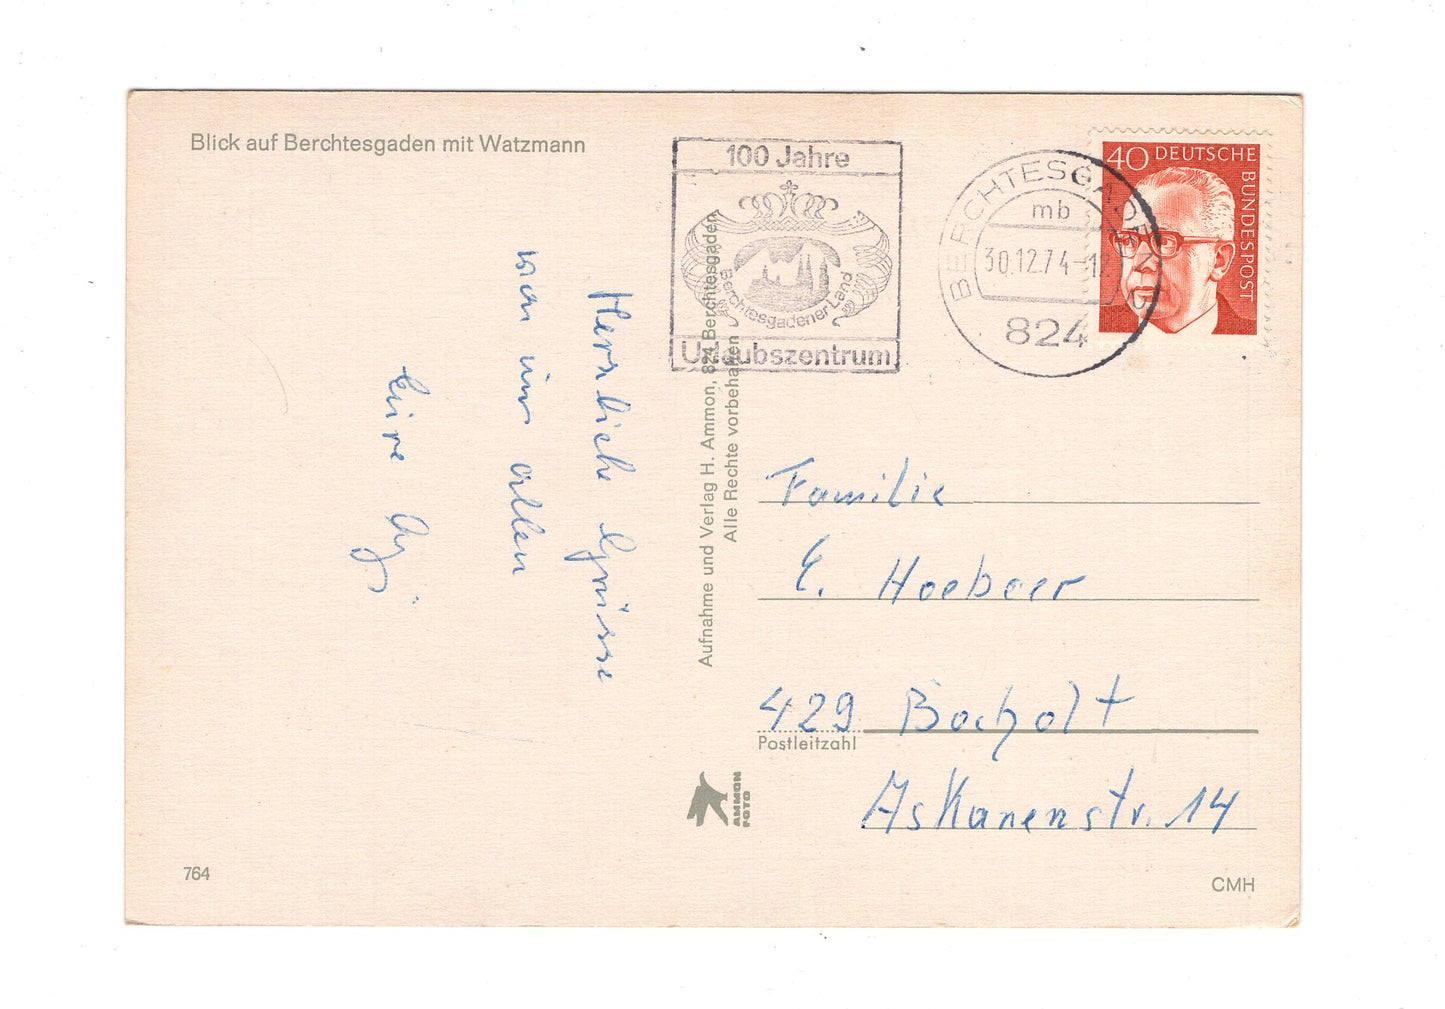 Blick auf Berchtesgaden mit Watzmann
100 Jahre
Berchtesgadener Land
Urlaubszentrum
BERCHTESGADEN
mb
30.12.74-12
824
40 DEUTSCHE
BUNDESPOST
Herzliche Grüsse
von uns allen
Eure
Aufnahme und Verlag H. Ammon, 824 Berchtesgaden
Alle Rechte vorbehalten
Familie
E. Hoebeer
429 Bocholt
Postleitzahl
Askanenstr. 14
AMMON
FOTO
764
CMH